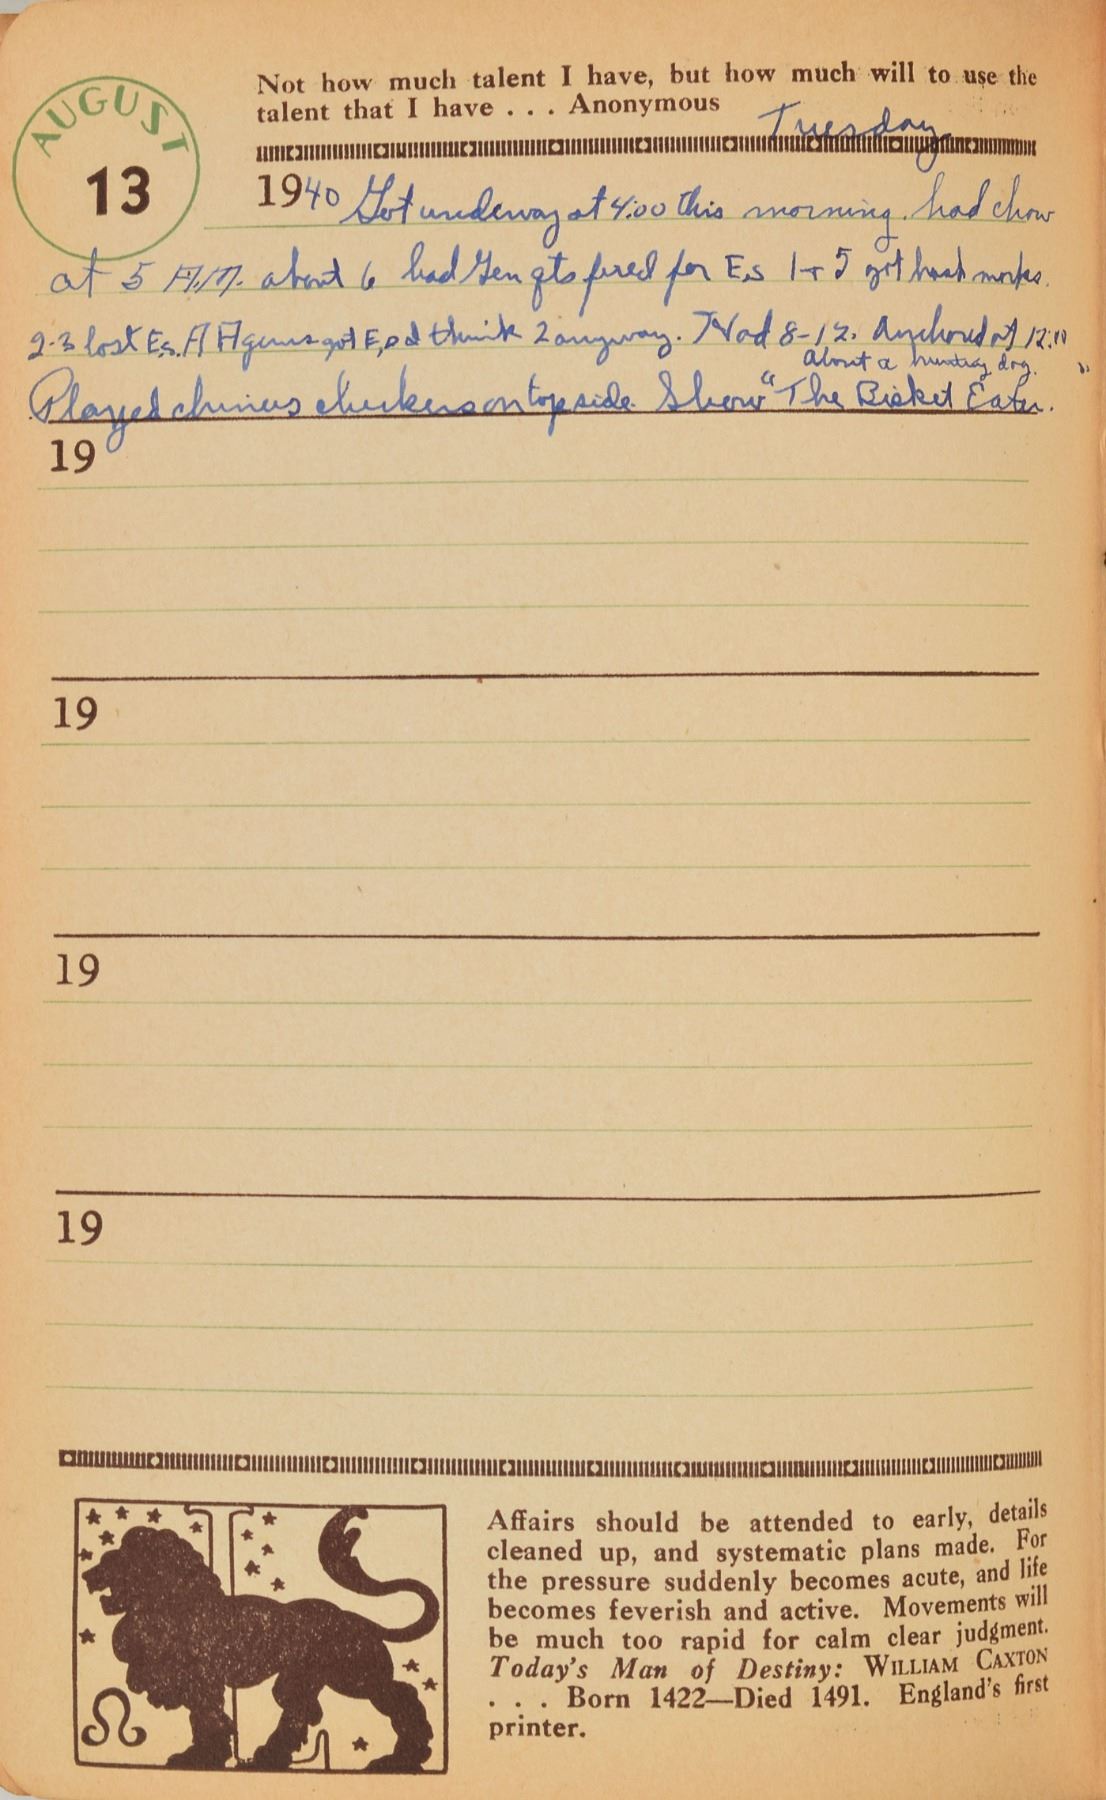 Not how much talent I have, but how much will to use the
talent that I have . . . Anonymous
Tuesday
AUGUST
13
1940 Got underway at 4:00 this morning. had chow
at 5 A.M. about 6 had Gen qts fired for E,s 1+5 got hash marks.
2-3 lost E,s. A A guns got E, I think 2 anyway. Had 8-12. Anchored at 12:10
About a hunting dog.
Played chinees chickers on topside. Show "The Bisket Eater."
19
19
19
19
Affairs should be attended to early, details
cleaned up, and systematic plans made. For
the pressure suddenly becomes acute, and life
becomes feverish and active. Movements will
be much too rapid for calm clear judgment.
Today's Man of Destiny: WILLIAM CAXTON
. . . Born 1422—Died 1491. England's first
printer.